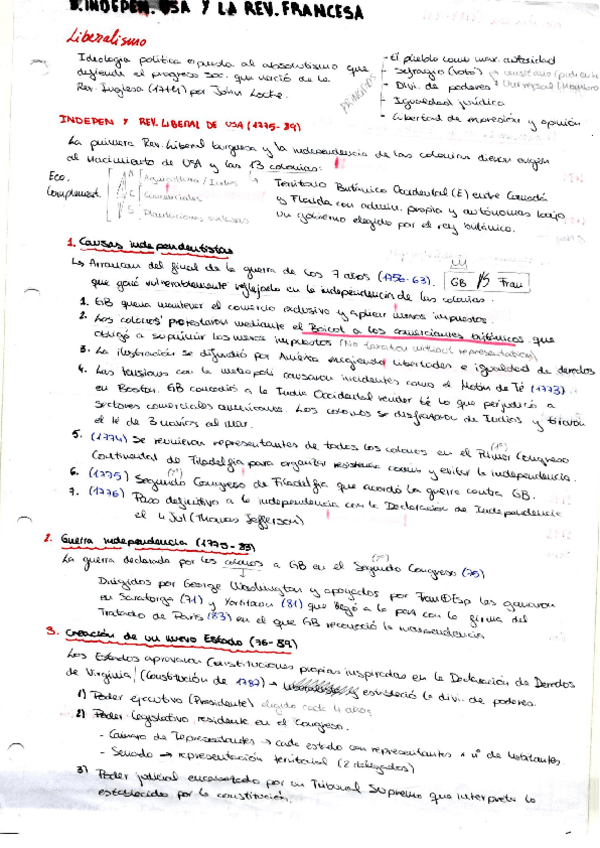 INDEPEN. USA Y LA REV. FRANCESA
Liberalismo
Ideología política opuesta al absolutismo que
defiende el progreso soc. que nació de la
Rev. Inglesa por John Locke.
PRINCIPIOS
- El pueblo como max. autoridad
- Sufragio (voto)
- Divi. de poderes
- Igualdad jurídica
- Libertad de impresión y opinión
INDEPEN Y REV. LIBERAL DE USA (1775-89)
La primera Rev. Liberal burguesa y la independencia de las colonias dieron origen
al Nacimiento de USA y las 13 colonias:
Eco.
Complement.
N
C Comerciales
S Plantaciones
Territorio Británico Occidental (E) entre Canadá
y Florida con admin. propia y autónomas bajo
un gobierno elegido por el rey británico.
1. Causas independentistas
↳ Arrancan del final de la guerra de los 7 años (1756-63). GB VS Fran
que ganó reflejado en la independencia de las colonias.
1. GB quería mantener el comercio exclusivo y aplicar nuevos impuestos.
2. Los colonos protestaron mediante el Boicot a los comerciantes británicos que
obligó a suprimir los nuevos impuestos (No taxation without representation)
3. La ilustración se difundió por América libertades e igualdad de derechos
4. Las tensiones con la metrópoli causaron incidentes como el Motín de Té (1773)
en Boston. GB concedió a la Occidental vender té lo que perjudicó a
sectores comerciales americanos. Los colonos se disfrazaron de Indios y tiraron
el té de 3 navíos al mar.
5. (1774) Se reunieron representantes de todos los colonos en el Primer Congreso (1º)
Continental de Filadelfia para organizar resistencia común y evitar la independencia.
6. (1775) Segundo Congreso de Filadelfia que acordó la guerra contra GB.
7. (1776) Paso definitivo a la independencia con la Declaración de Independencia
el 4 Jul (Thomas Jefferson)
2. Guerra independencia (1775-83)
La guerra declarada por los colonos a GB en el Segundo Congreso (75)
Dirigidos por George Washington y apoyados por Fran Esp les ganaron
en Saratoga (71) y (81) que llegó a la paz con la firma del
Tratado de París (83) en el que GB reconoció la independencia
3. Creación de un nuevo Estado (76-89)
Los Estados aprovaron Constituciones propias inspiradas en la Declaración de Derechos
de Virginia / (Constitución de 1787) → estableció la divi. de poderes.
1) Poder ejecutivo (Presidente) elegido cada 4 años
2) Poder legislativo residente en el Congreso.
- Cámara de Representantes → cada estado con representantes x nº de habitantes.
- Senado → representación territorial (2 delegados)
3) Poder judicial encabezado por un Tribunal Supremo que interpreta lo
establecido por la constitución.